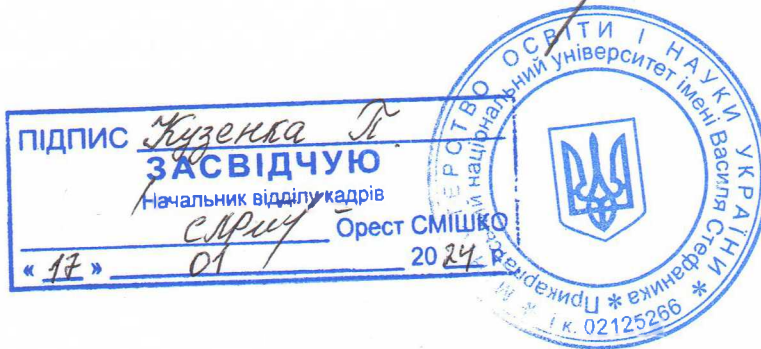 ПІДПИС Кузенка П
ЗАСВІДЧУЮ
Начальник відділу кадрів
Орест СМІШКО
« 17 » 01 2024 р.
МІНІСТЕРСТВО ОСВІТИ І НАУКИ УКРАЇНИ *
Прикарпатський національний університет імені Василя Стефаника *
і.к. 02125266